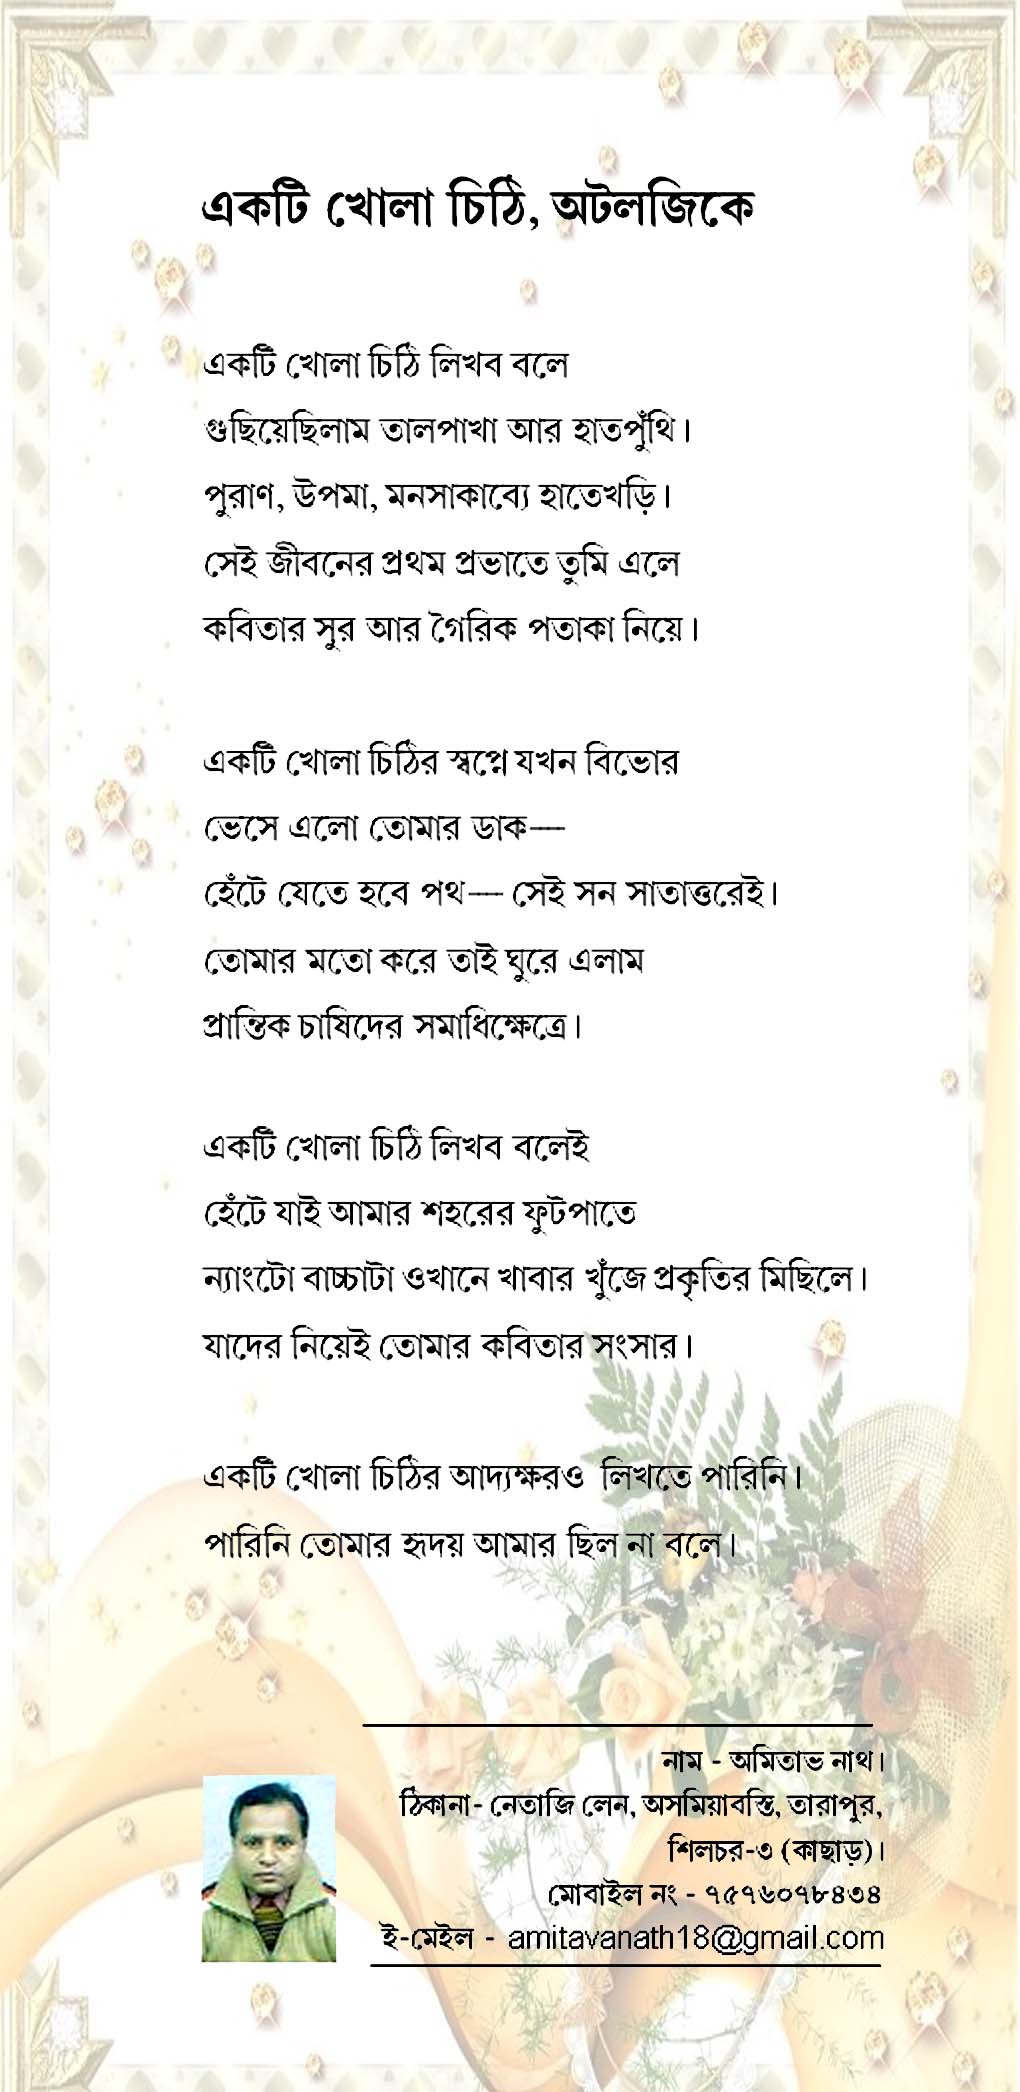 একটি খোলা চিঠি, অটলজিকে
একটি খোলা চিঠি লিখব বলে
গুছিয়েছিলাম তালপাখা আর হাতপুঁথি।
পুরাণ, উপমা, মনসাকাব্যে হাতেখড়ি।
সেই জীবনের প্রথম প্রভাতে তুমি এলে
কবিতার সুর আর গৈরিক পতাকা নিয়ে।
একটি খোলা চিঠির স্বপ্নে যখন বিভোর
ভেসে এলো তোমার ডাক—
হেঁটে যেতে হবে পথ— সেই সন সাতাত্তরেই।
তোমার মতো করে তাই ঘুরে এলাম
প্রান্তিক চাষিদের সমাধিক্ষেত্রে।
একটি খোলা চিঠি লিখব বলেই
হেঁটে যাই আমার শহরের ফুটপাতে
ন্যাংটো বাচ্চাটা ওখানে খাবার খুঁজে প্রকৃতির মিছিলে।
যাদের নিয়েই তোমার কবিতার সংসার।
একটি খোলা চিঠির আদ্যক্ষরও লিখতে পারিনি।
পারিনি তোমার হৃদয় আমার ছিল না বলে।
নাম - অমিতাভ নাথ।
ঠিকানা- নেতাজি লেন, অসমিয়াবস্তি, তারাপুর,
শিলচর-৩ (কাছাড়)।
মোবাইল নং - ৭৫৭৬০৭৮৪৩৪
ই-মেইল - amitavanath18@gmail.com